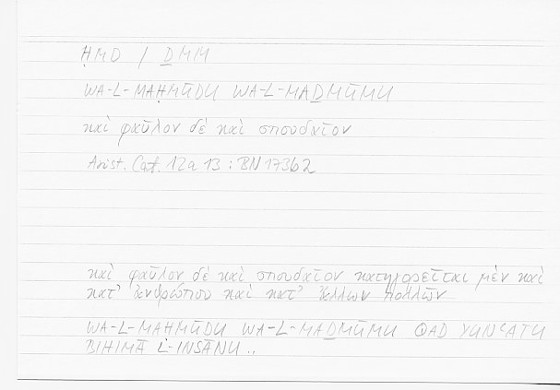 ḤMD / ḎMM
WA-L-MAḤMŪDU WA-L-MAḎMŪMU
καὶ φαῦλον δὲ καὶ σπουδαῖον
Arist. Cat. 12a 13 : BN 17362
καὶ φαῦλον δὲ καὶ σπουδαῖον κατηγορεῖται μὲν καὶ
κατ' ἀνθρώπου καὶ κατ' ἄλλων πολλῶν
WA-L-MAḤMŪDU WA-L-MAḎMŪMU QAD YUNʿATU
BIHIMĀ L-INSĀNU ..